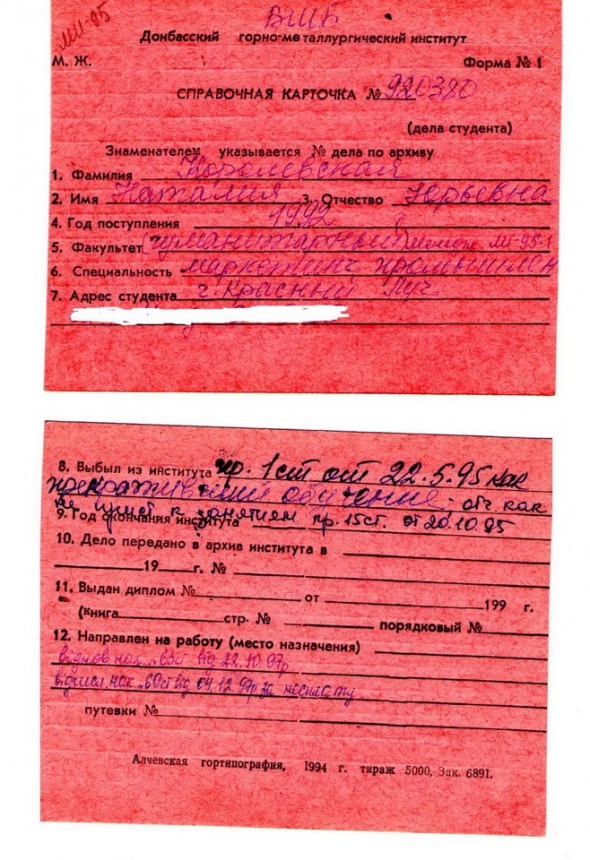 МИ-95
Донбасский горно-металлургический институт
М. Ж. Форма № 1
СПРАВОЧНАЯ КАРТОЧКА № 920380
(дела студента)
Знаменателем указывается № дела по архиву
1. Фамилия Королевская
2. Имя Наталия 3. Отчество Юрьевна
4. Год поступления 1992
5. Факультет (гуманитарный) МГ-95-1
6. Специальность маркетинг промышлен
7. Адрес студента г. Красный Луч
8. Выбыл из института пр. 1ст от 22.5.95 как
прекратившая обучение, отч как
не прист к занятиям пр. 15ст. от 20.10.95
9. Год окончания института
10. Дело передано в архив института в
19 г. №
11. Выдан диплом № от 199 г.
(книга стр. № порядковый №
12. Направлен на работу (место назначения)
відновнак. 63ст від 22.10.97р
від 04.12.97р за несплату
путевки №
Алчевская гортипография, 1994 г. тираж 5000, Зак. 6891.